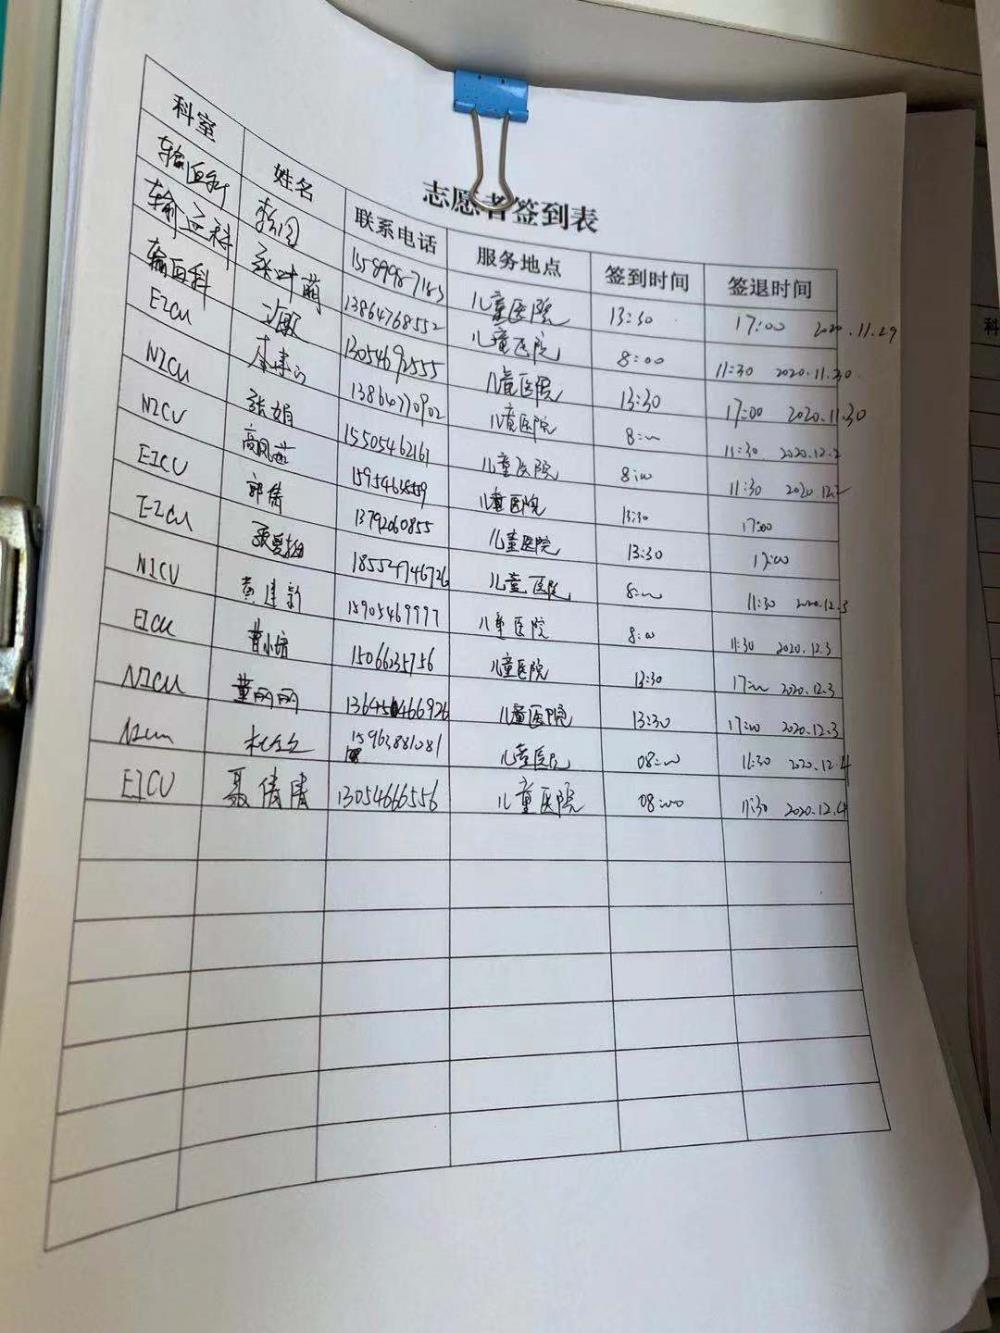 志愿者签到表
科室 姓名 联系电话 服务地点 签到时间 签退时间
输血科 15899871 儿童医院 13:30 17:00 2020.11.29
输血科 孙叶萌 13864768552 儿童医院 8:00 11:30 2020.11.30
输血科 13054692555 儿童医院 13:30 17:00 2020.11.30
EICU 儿童医院 8:00 11:30 2020.12.2
NICU 张娟 15505462161 儿童医院 8:00 11:30 2020.12.2
NICU 高凤 儿童医院 13:30 17:00
EICU 郭倩 13792060855 儿童医院 13:30 17:00
EICU 18554746726 儿童医院 8:00 11:30 2020.12.3
NICU 黄建新 15905469997 儿童医院 8:00 11:30 2020.12.3
EICU 曹小倩 儿童医院 13:30 17:00 2020.12.3
NICU 董网网 儿童医院 13:30 17:00 2020.12.3
NICU 15963881081 儿童医院 08:00 11:30 2020.12.4
EICU 聂倩倩 13054666556 儿童医院 08:00 11:30 2020.12.4
科